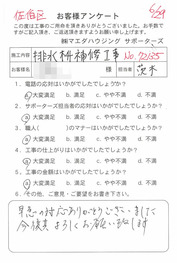 佐伯区
5/29
お客様アンケート
この度は工事のご用命を頂きありがとうございました。お手数で
すがご記入頂き、ご返送頂きますようお願い申し上げます。
㈱マエダハウジング サポーターズ
施工内容 排水桝補修工事 No.72125
お客様名 様 担当者 茨木
1. 電話の応対はいかがでしたでしょうか？
a.大変満足 b.満足 c.やや不満 d.不満
2. サポーターズ担当者の応対はいかがでしたでしょうか？
a.大変満足 b.満足 c.やや不満 d.不満
3. 職人( )のマナーはいかがでしたでしょうか？
a.大変満足 b.満足 c.やや不満 d.不満
4. 工事の仕上がりはいかがでしたでしょうか？
a.大変満足 b.満足 c.やや不満 d.不満
5. 工事金額はいかがでしたでしょうか？
a.大変満足 b.満足 c.やや不満 d.不満
6. その他、ご意見・ご要望をお書き下さい。
早急の対応ありがとうございました
今後共よろしくお願い致します